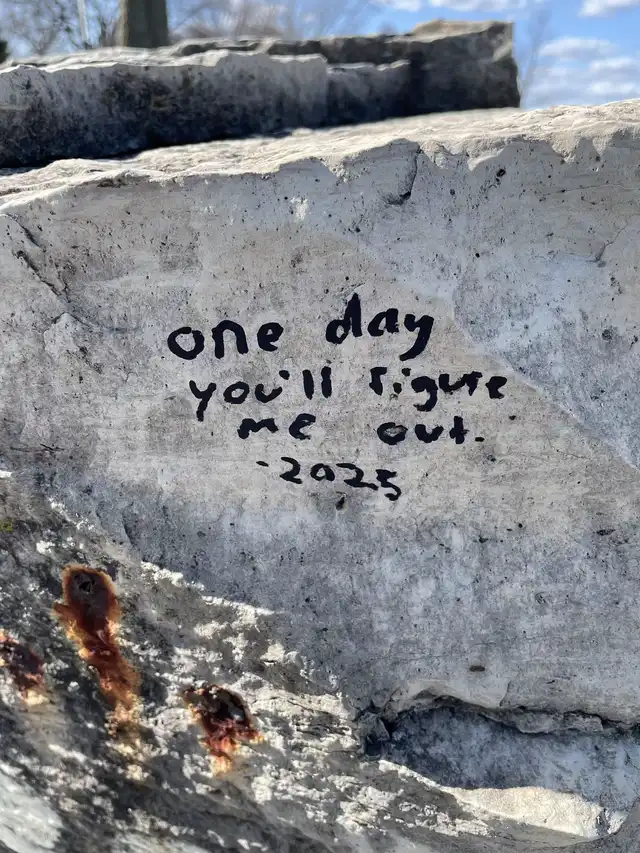 one day
you'll figure
me out.
-2025